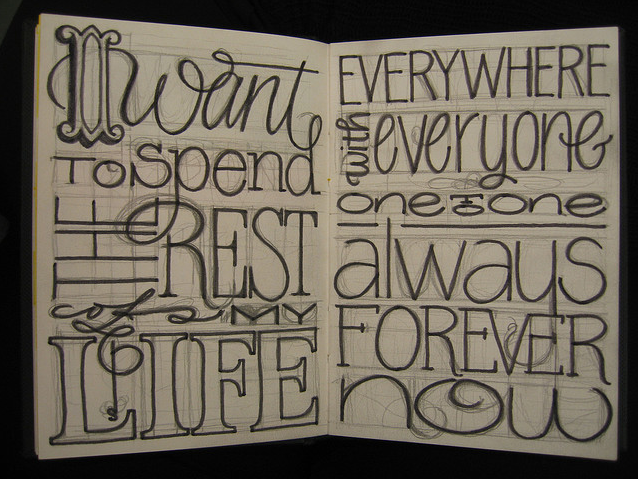 I want
TO spend
THE REST
of MY
LIFE
EVERYWHERE
with everyone
one to one
always
FOREVER
now